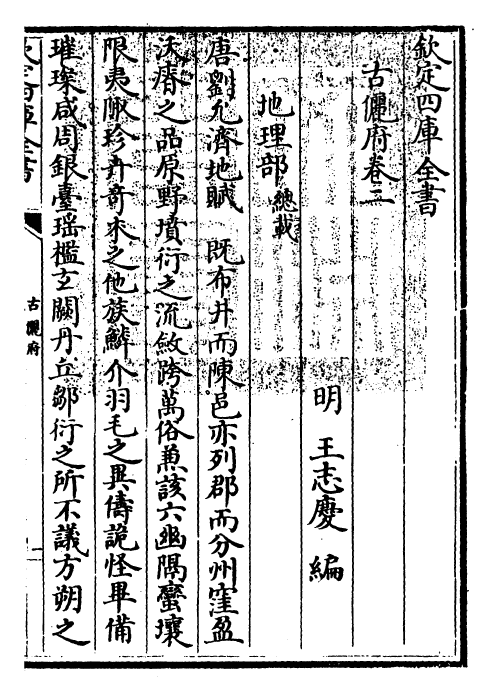 欽定四庫全書
古儷府卷三
明 王志慶 編
地理部 總載
唐劉允濟地賦 既布井而陳邑亦列郡而分州窪盈
沃瘠之品原野墳衍之流斂跨萬俗兼該六幽隅蠻壤
限夷陬珍卉竒木之他族鱗介羽毛之異儔詭怪畢備
璀璨咸周銀臺瑶檻玄闕丹丘鄒衍之所不議方朔之
古儷府